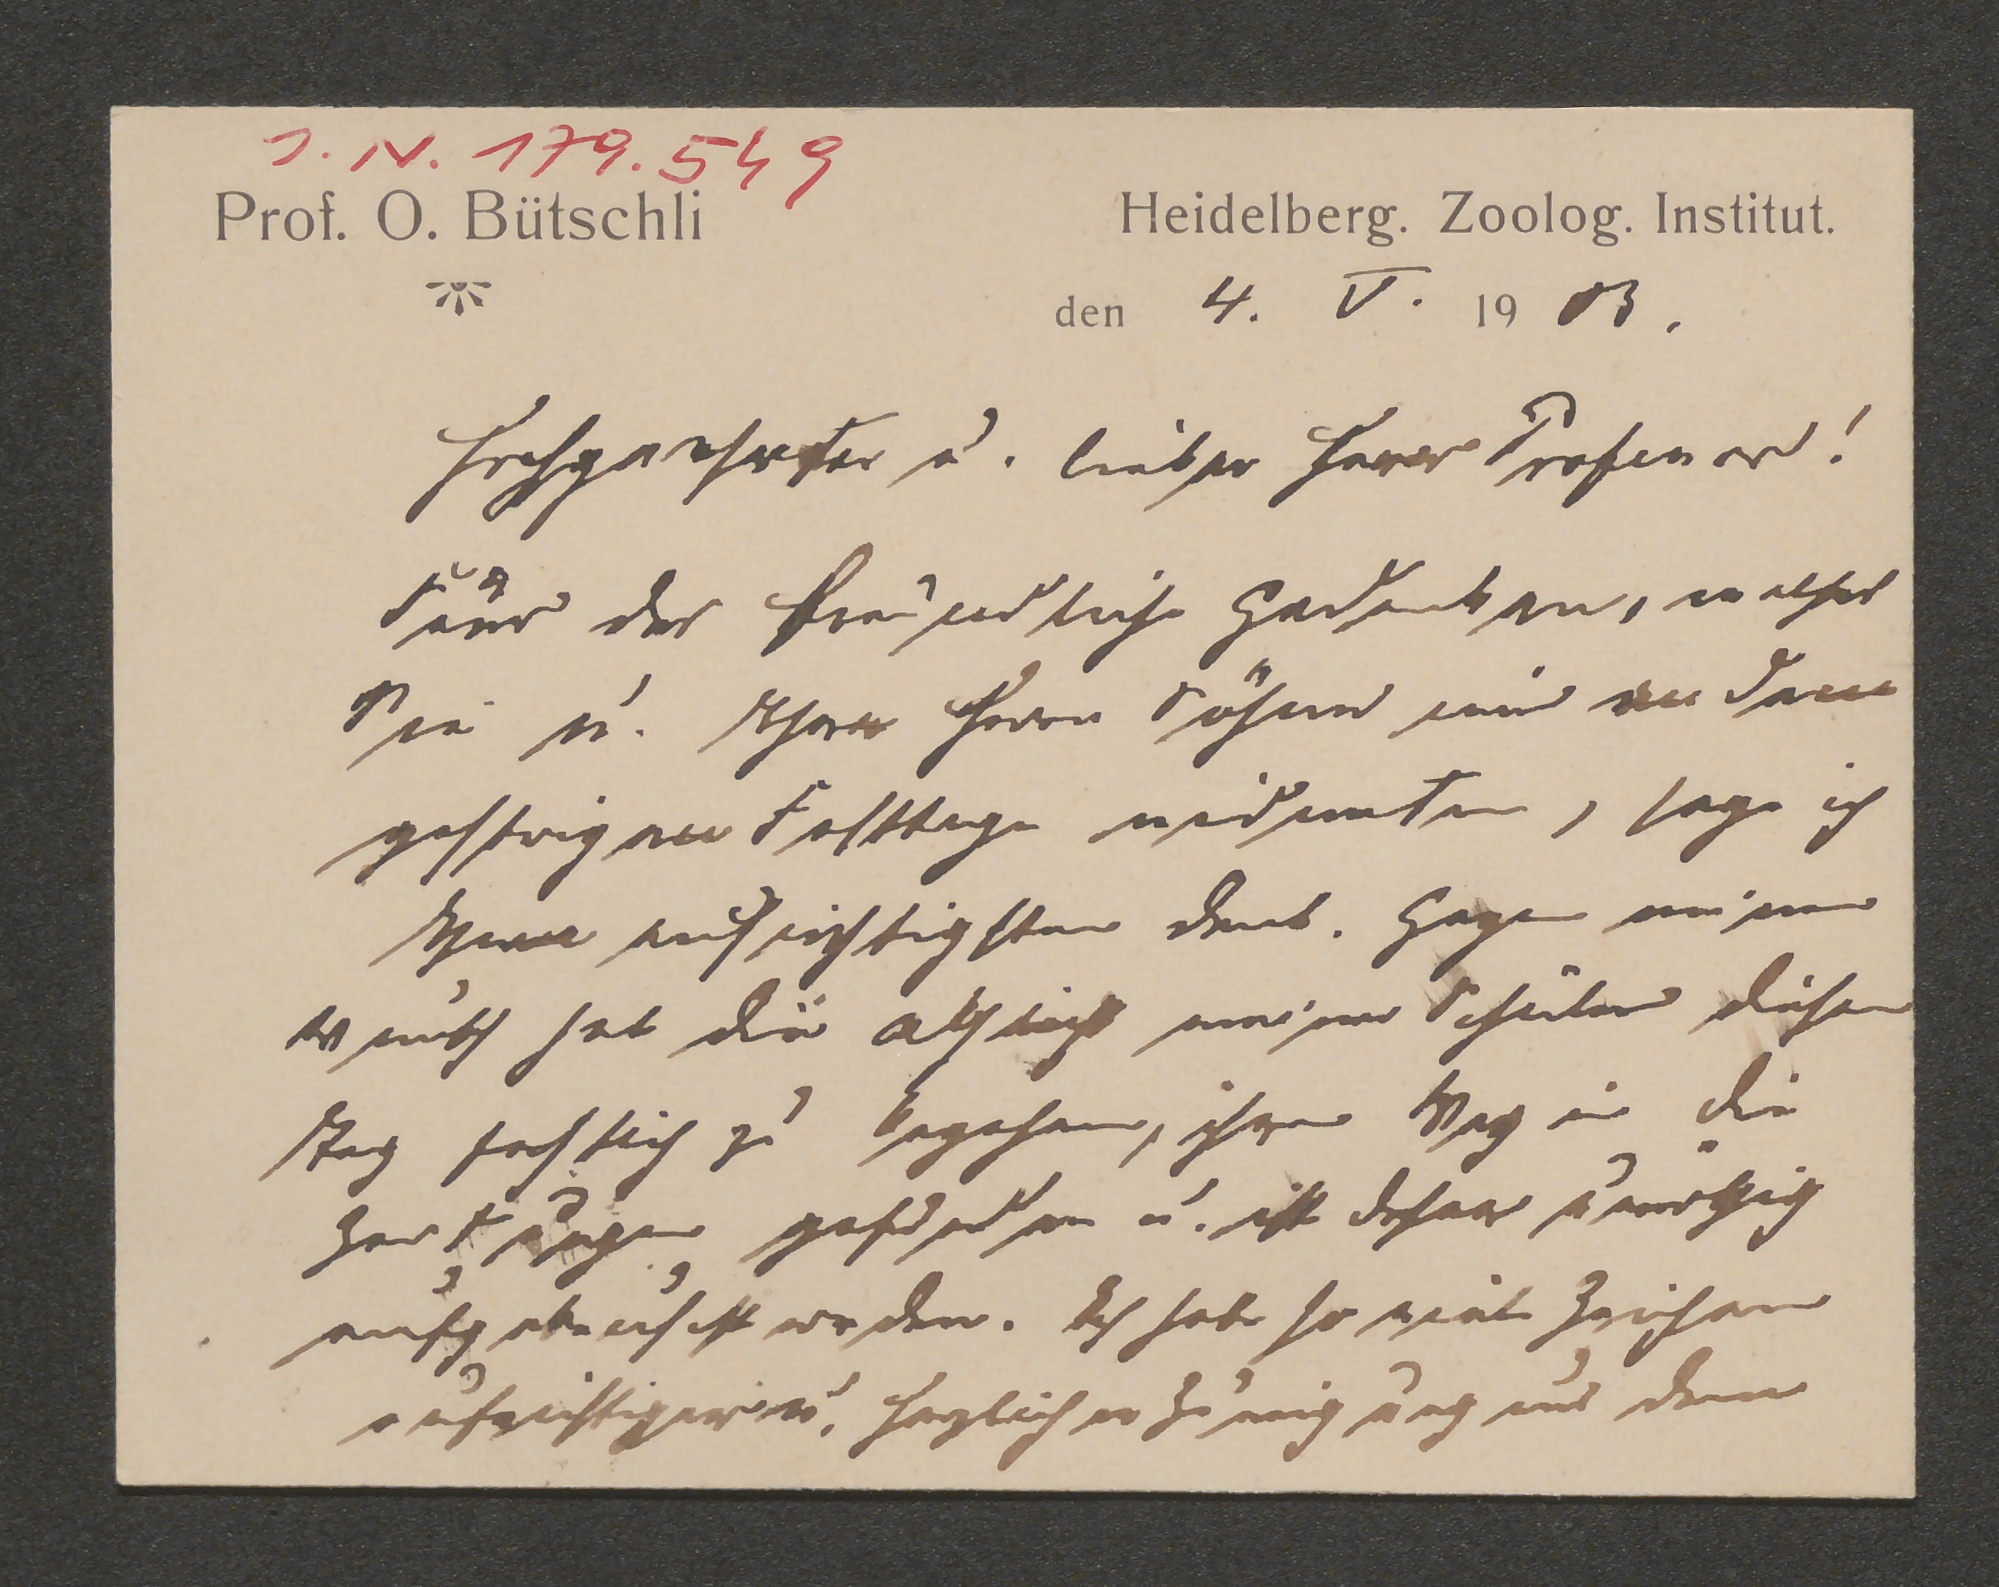 J. N. 179.549
Prof. O. Bütschli
Heidelberg. Zoolog. Institut.
den 4. V. 1903.
Hochgeehrter u. lieber Herr Professor!
Für das freundliche Gedenken, welches
Sie u. Ihre Herrn Söhne mir an dem
gestrigen Festtage widmeten, sage ich
Ihnen aufrichtigsten Dank. Gegen meinen
Wunsch hat die Absicht meiner Schüler diesen
Tag festlich zu begehen, ihren Weg in die
Zeitungen gefunden u. ist daher unnöthig
aufgebauscht worden. Ich habe so viele Zeichen
aufrichtiger u. herzlicher Zuneigung aus dem